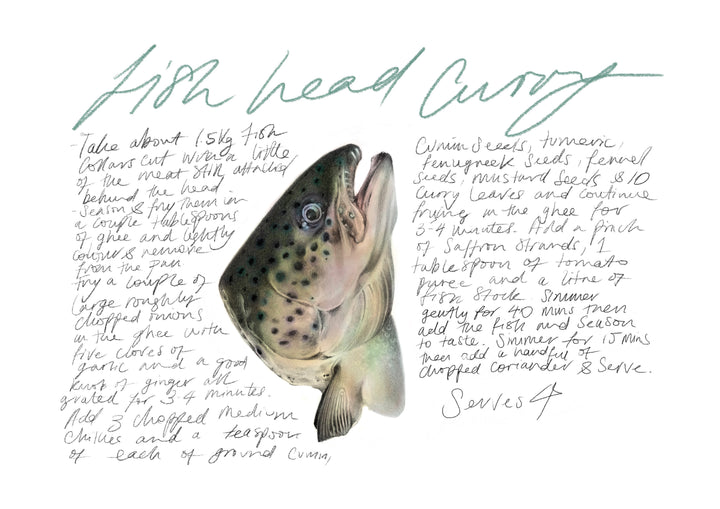 fish head Curry
- Take about 1.5kg fish
Collars cut with a little
of the meat still attached
behind the head.
- Season & fry them in
a couple tablespoons
of ghee and lightly
colour & remove
from the pan
fry a couple of
large roughly
chopped onions
in the ghee with
five cloves of
garlic and a good
knob of ginger all
grated for 3-4 minutes.
Add 3 chopped medium
chillies and a teaspoon
of each of ground cumin,
Cumin seeds, tumeric,
fenugreek seeds, fennel
seeds, mustard seeds & 10
curry leaves and continue
frying in the ghee for
3-4 minutes. Add a pinch
of saffron strands, 1
tablespoon of tomato
puree and a litre of
fish stock. Simmer
gently for 40 mins then
add the fish and season
to taste. Simmer for 15 mins
then add a handful of
chopped coriander & serve.
Serves 4